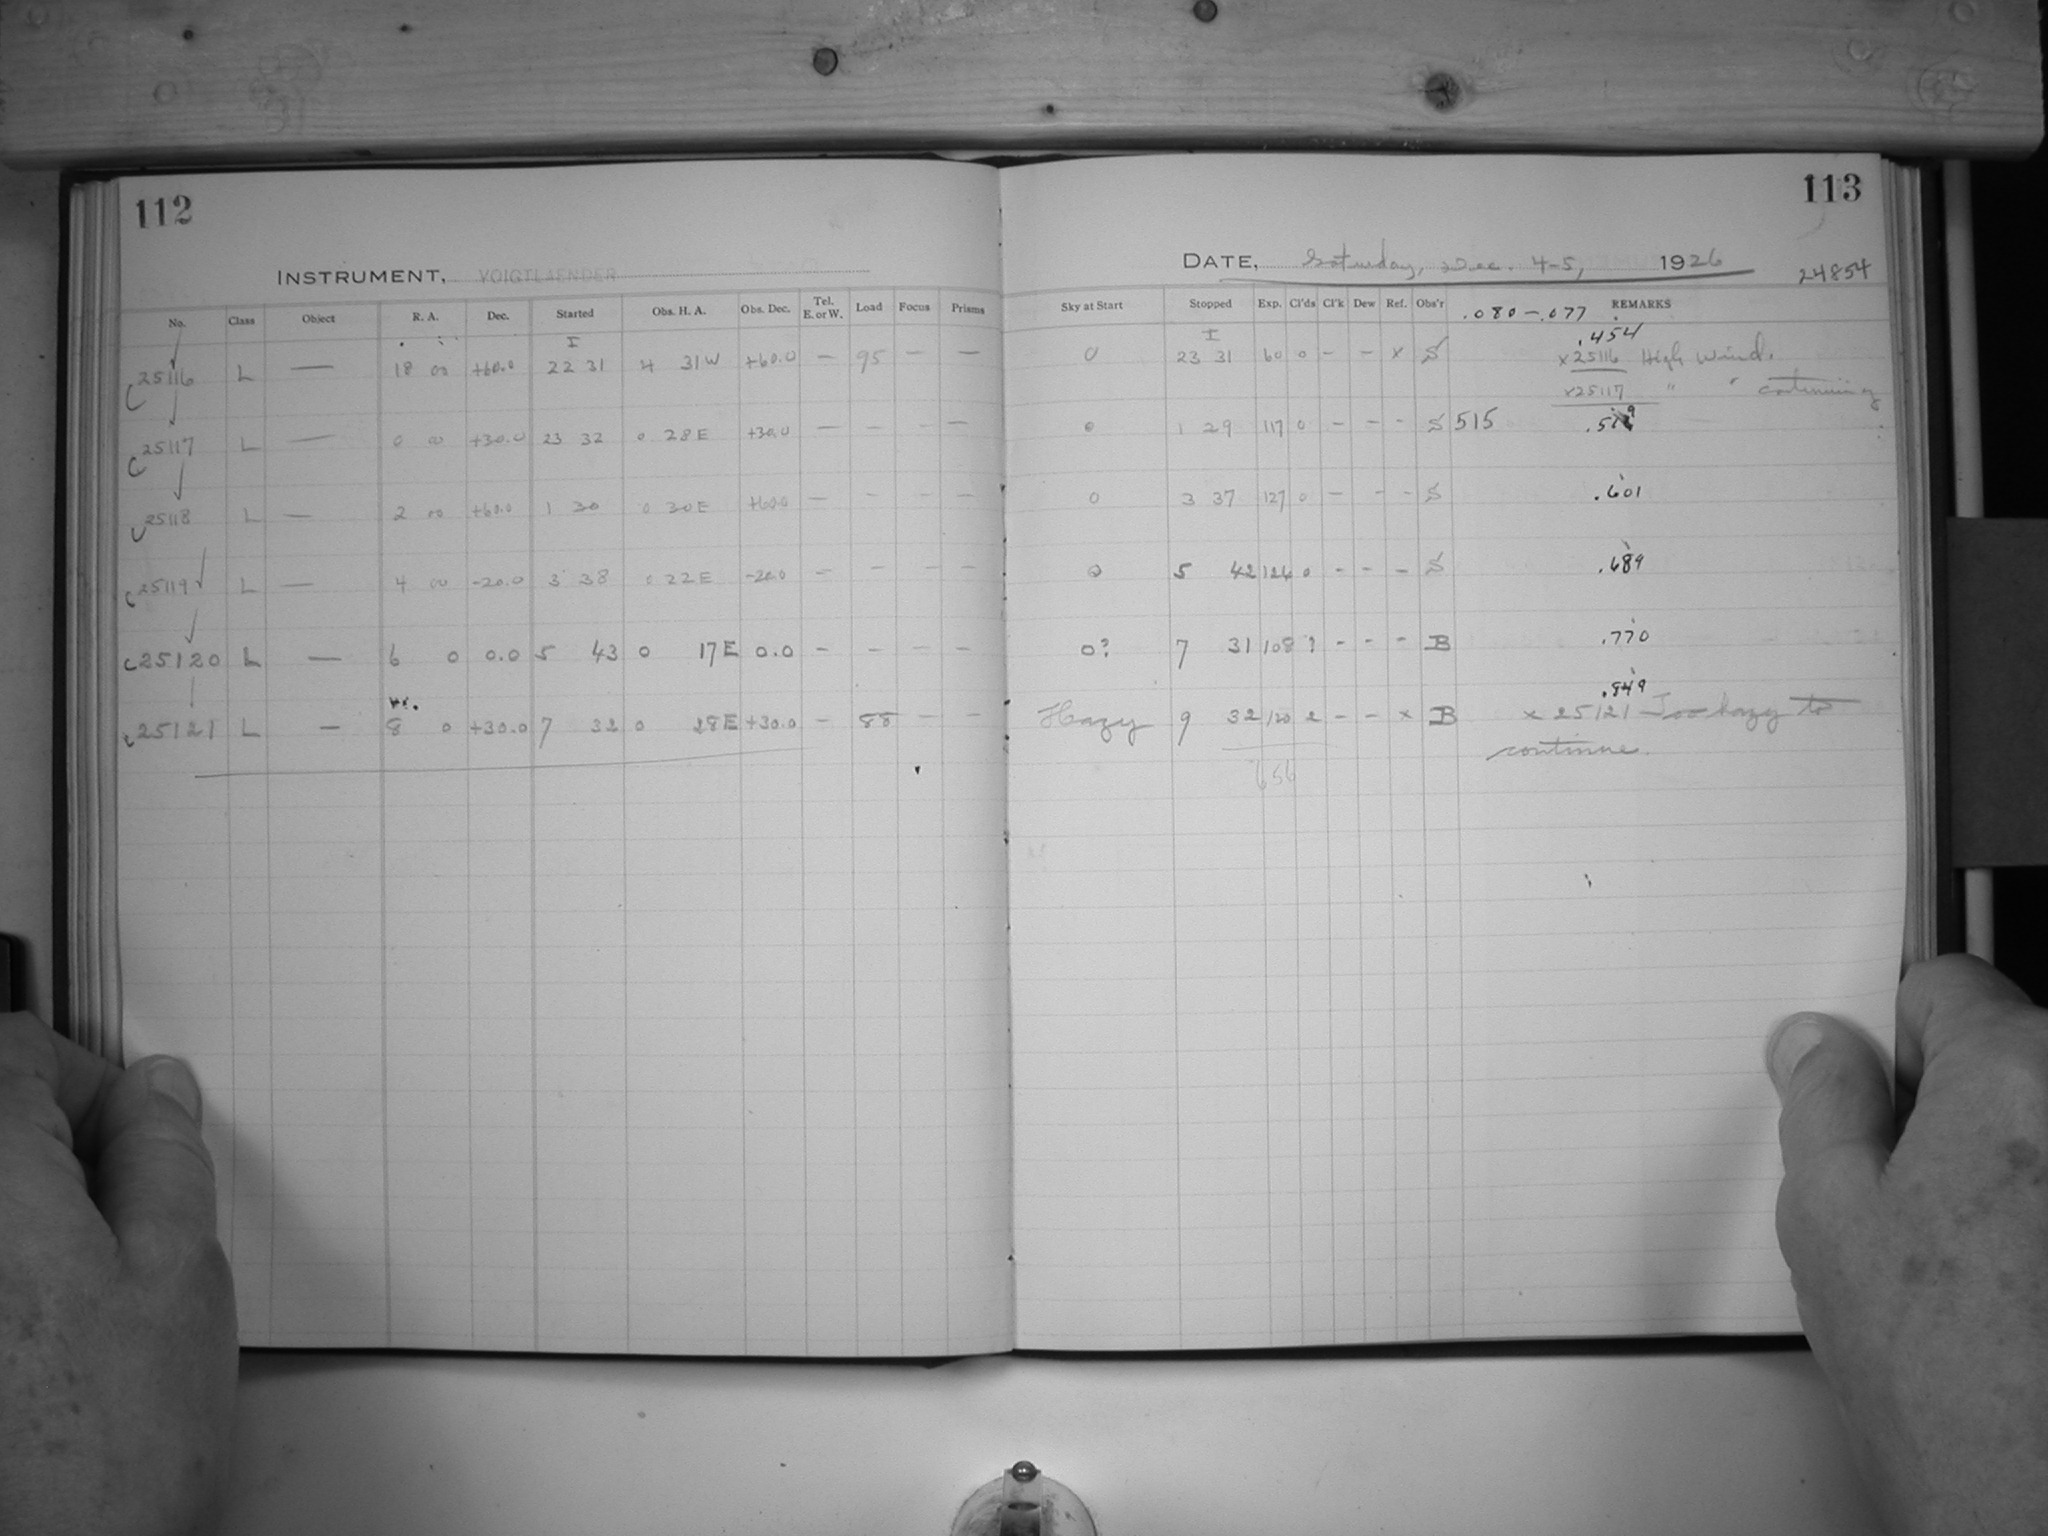 112
INSTRUMENT, VOIGTLAENDER
No. Class Object R. A. Dec. Started Obs. H. A. Obs. Dec. Tel. E. or W. Load Focus Prisms
I
C 25116 L — 18 00 +60.0 22 31 4 31 W +60.0 — 95 — —
C 25117 L — 0 00 +30.0 23 32 0 28 E +30.0 — — — —
C 25118 L — 2 00 +60.0 1 30 0 30 E +60.0 — — — —
C 25119 L — 4 00 -20.0 3 38 0 22 E -20.0 — — — —
C 25120 L — 6 0 0.0 5 43 0 17 E 0.0 — — — —
C 25121 L — 8 0 +30.0 7 32 0 28 E +30.0 — 88 — —
113
DATE, Saturday, Dec. 4-5, 1926
24854
Sky at Start Stopped Exp. Cl'ds Cl'k Dew Ref. Obs'r REMARKS
.080 - .077
I
.454
0 23 31 60 0 - - x S x 25116 High Wind.
x 25117 " " continuing
0 1 29 117 0 - - - S 515
0 3 37 127 0 - - - S .601
0 5 42 124 0 - - - S .689
0? 7 31 108 ? - - - B .770
.849
Hazy 9 32 120 2 - - x B x 25121 Too hazy to
continue.
656